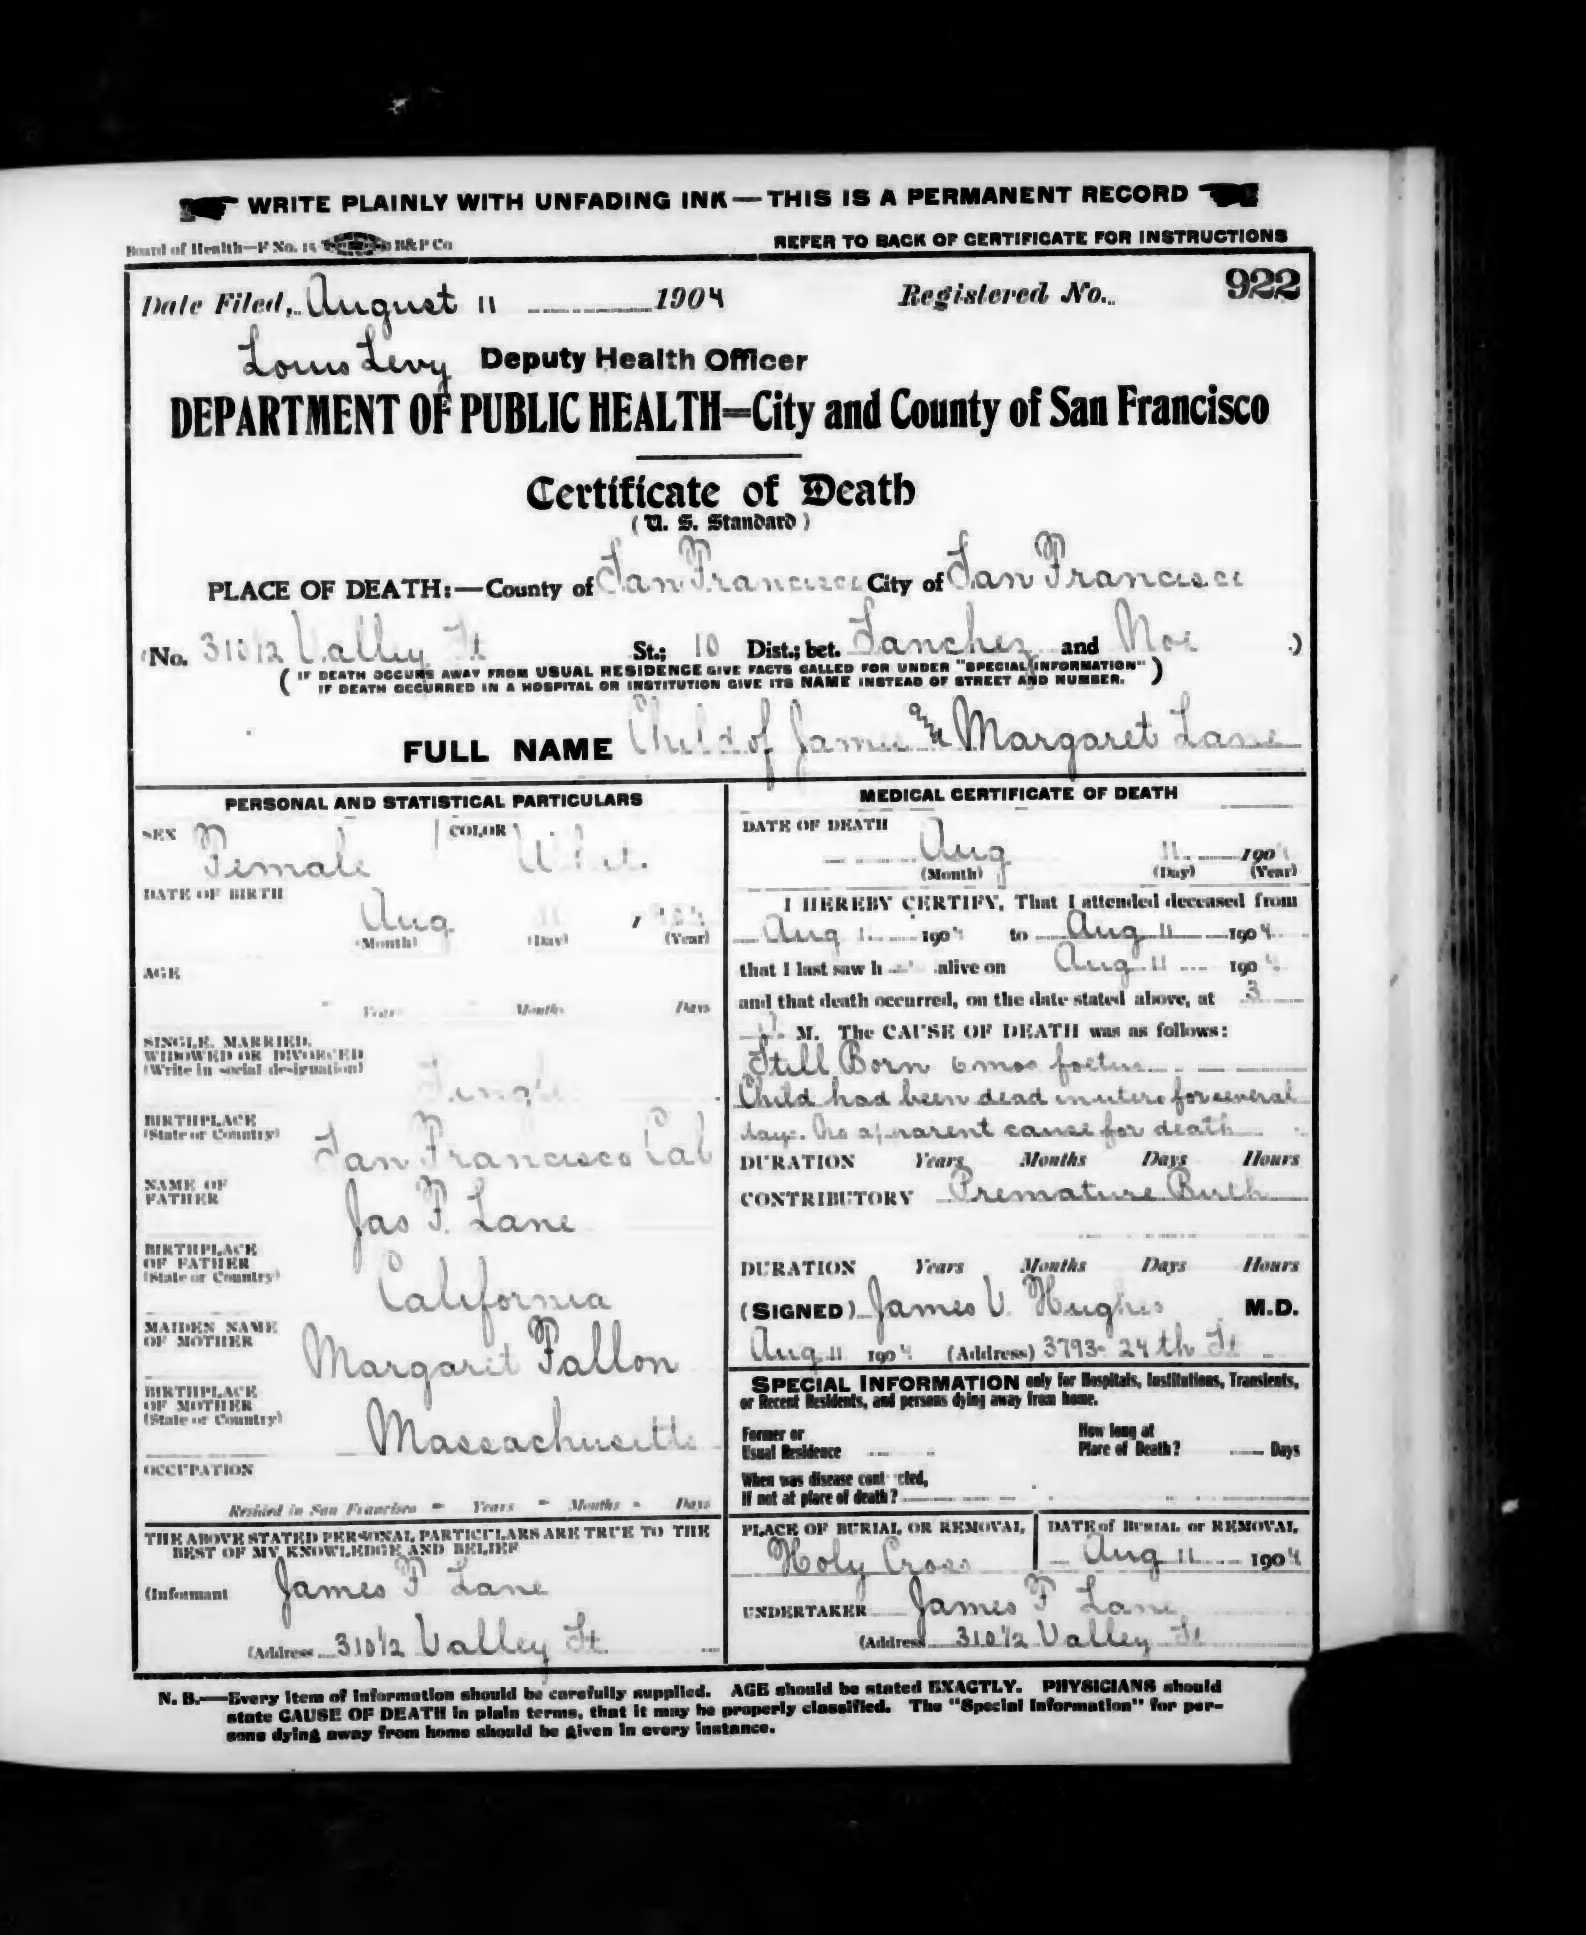 WRITE PLAINLY WITH UNFADING INK — THIS IS A PERMANENT RECORD
Board of Health—F No. 15 B&P Co REFER TO BACK OF CERTIFICATE FOR INSTRUCTIONS
Date Filed, August 11 1904 Registered No. 922
Louis Levy Deputy Health Officer
DEPARTMENT OF PUBLIC HEALTH—City and County of San Francisco
Certificate of Death
(U. S. Standard)
PLACE OF DEATH:—County of San Francisco City of San Francisco
(No. 310 1/2 Valley St St.; 10 Dist.; bet. Sanchez and Noe )
( IF DEATH OCCURS AWAY FROM USUAL RESIDENCE GIVE FACTS CALLED FOR UNDER "SPECIAL INFORMATION" )
IF DEATH OCCURRED IN A HOSPITAL OR INSTITUTION GIVE ITS NAME INSTEAD OF STREET AND NUMBER.
FULL NAME Child of James and Margaret Lane
PERSONAL AND STATISTICAL PARTICULARS
SEX Female COLOR White
DATE OF BIRTH
Aug 11 , 1904
(Month) (Day) (Year)
AGE
Years Months Days
SINGLE, MARRIED,
WIDOWED OR DIVORCED
(Write in social designation)
Single
BIRTHPLACE
(State or Country)
San Francisco Cal
NAME OF
FATHER
Jas F. Lane
BIRTHPLACE
OF FATHER
(State or Country)
California
MAIDEN NAME
OF MOTHER
Margaret Fallon
BIRTHPLACE
OF MOTHER
(State or Country)
Massachusetts
OCCUPATION
Resided in San Francisco - Years - Months - Days
THE ABOVE STATED PERSONAL PARTICULARS ARE TRUE TO THE
BEST OF MY KNOWLEDGE AND BELIEF
(Informant James F Lane
(Address 310 1/2 Valley St.
MEDICAL CERTIFICATE OF DEATH
DATE OF DEATH
Aug 11 1904
(Month) (Day) (Year)
I HEREBY CERTIFY, That I attended deceased from
Aug 11 1904 to Aug 11 1904
that I last saw h alive on Aug 11 1904
and that death occurred, on the date stated above, at 3
M. The CAUSE OF DEATH was as follows:
Still Born 6 mos foetus
Child had been dead in utero for several
days. No apparent cause for death
DURATION Years Months Days Hours
CONTRIBUTORY Premature Birth
DURATION Years Months Days Hours
(SIGNED) James V. Hughes M.D.
Aug 11 1904 (Address) 3793- 24th St
SPECIAL INFORMATION only for Hospitals, Institutions, Transients,
or Recent Residents, and persons dying away from home.
Former or
Usual Residence
How long at
Place of Death? Days
When was disease contracted,
If not at place of death?
PLACE OF BURIAL OR REMOVAL
Holy Cross
DATE of BURIAL or REMOVAL
Aug 11 1904
UNDERTAKER James F Lane
(Address 310 1/2 Valley St
N. B.—Every item of information should be carefully supplied. AGE should be stated EXACTLY. PHYSICIANS should
state CAUSE OF DEATH in plain terms, that it may be properly classified. The "Special Information" for per-
sons dying away from home should be given in every instance.